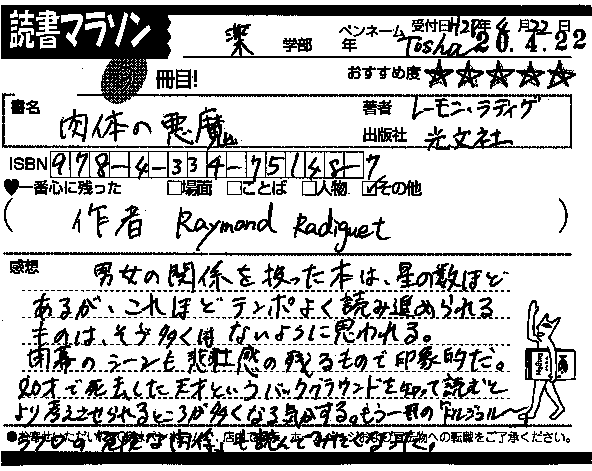 読書マラソン
薬 学部 年
ペンネーム Tosha
受付日 H28年 4月22日
20.4.22
冊目!
おすすめ度 ☆☆☆☆☆
書名 肉体の悪魔
著者 レーモン・ラディゲ
出版社 光文社
ISBN 978-4-334-75148-7
♥一番心に残った □場面 □ことば □人物 ☑その他
( 作者 Raymond Radiguet )
感想 男女の関係を扱った本は、星の数ほど
あるが、これほどテンポよく読み進められる
ものは、そう多くはないように思われる。
閉幕のシーンも悲壮感の残るもので印象的だ。
20才で死去した天才というバックグラウンドを知って読むと
より考えさせられるところが多くなる気がする。もう一冊の「ドルジェル
も読んでみたい